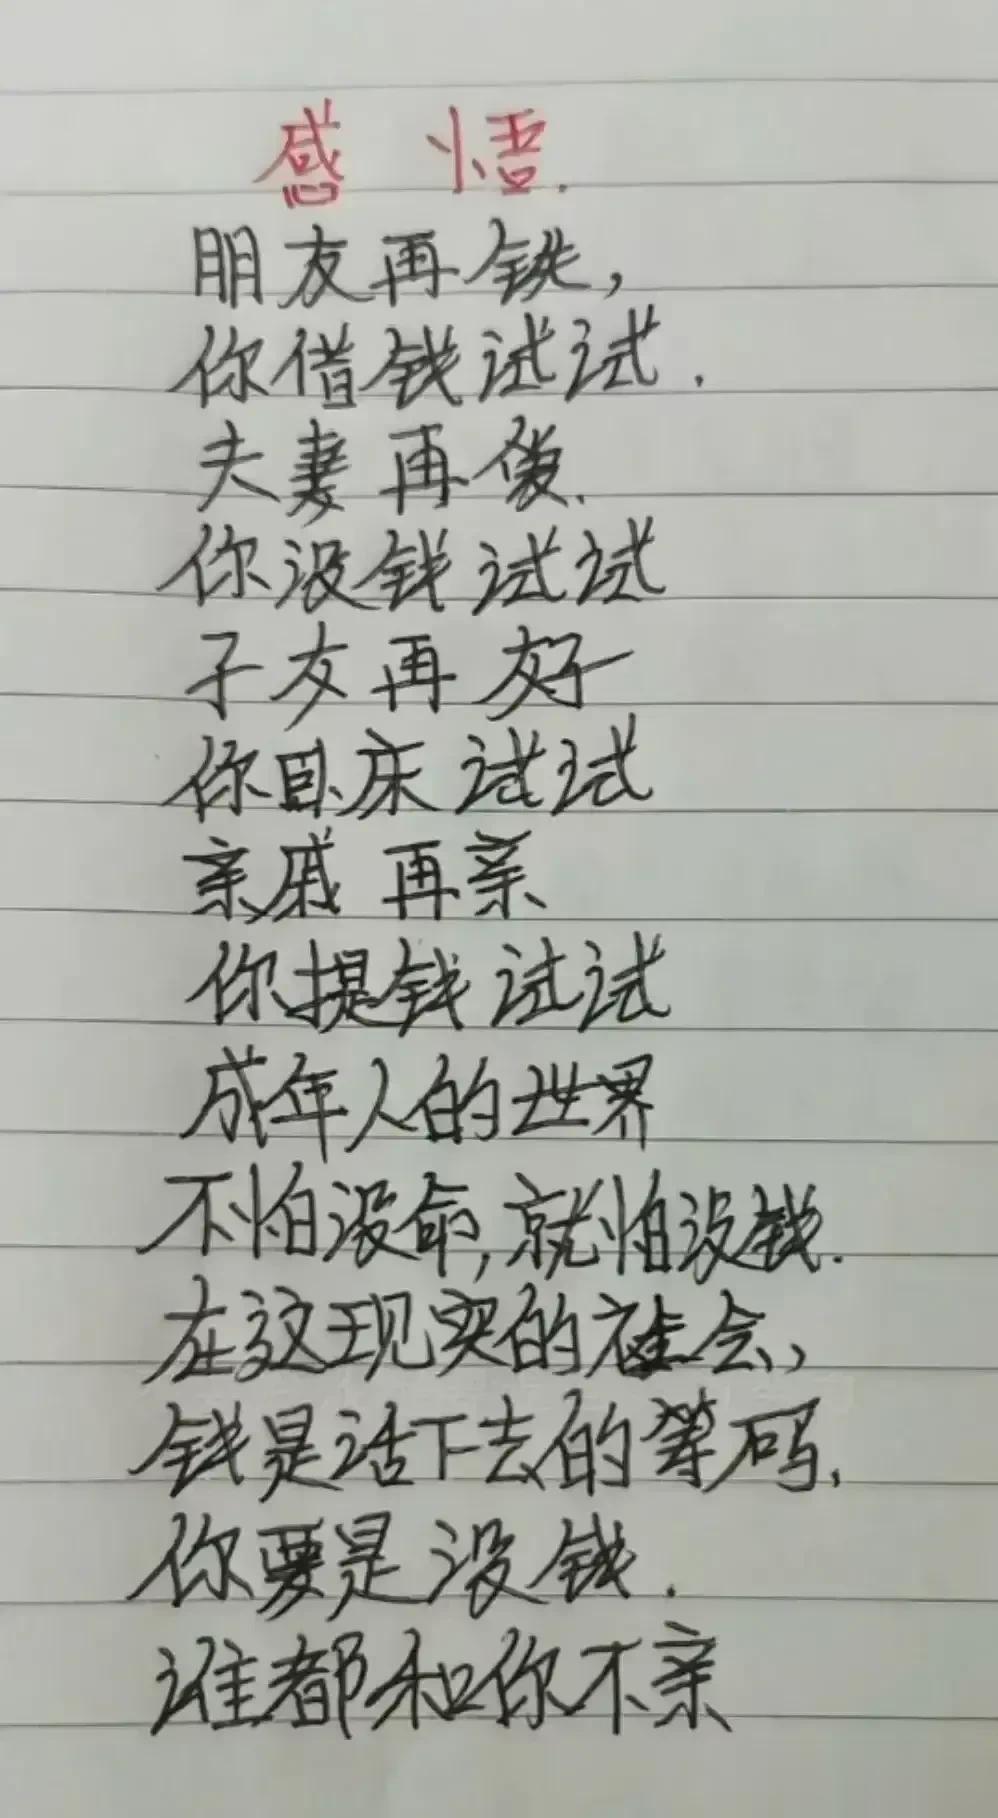 感悟.
朋友再铁,
你借钱试试.
夫妻再爱.
你没钱试试
子女再好
你卧床试试
亲戚再亲
你提钱试试
成年人的世界
不怕没命,就怕没钱.
在这现实的社会,
钱是活下去的筹码,
你要是没钱.
谁都和你不亲